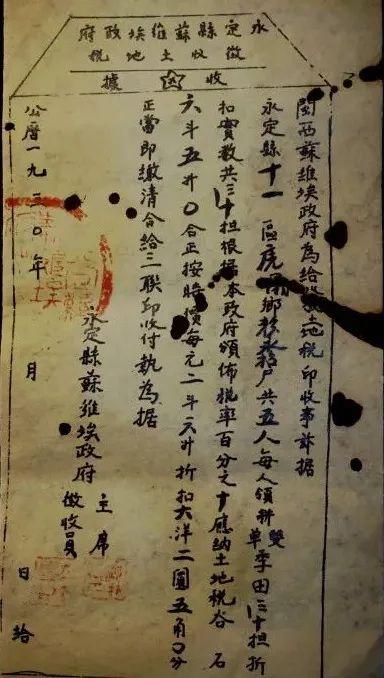 永定縣蘇維埃政府
徵收土地稅
收據
閩西蘇維埃政府為給土地稅印收事茲据
永定縣十一區虎鄉戶共五人每人領耕雙單季田十担折
扣實數共十担根據本政府頒佈稅率百分之應納土地稅谷 石
六斗五升〇合正按時價每元二斗六升折扣大洋二圓五角〇分
正當即繳清合給三聯印收付執為据
永定縣蘇維埃政府 主席
徵收員
公曆一九三〇年 月 日給